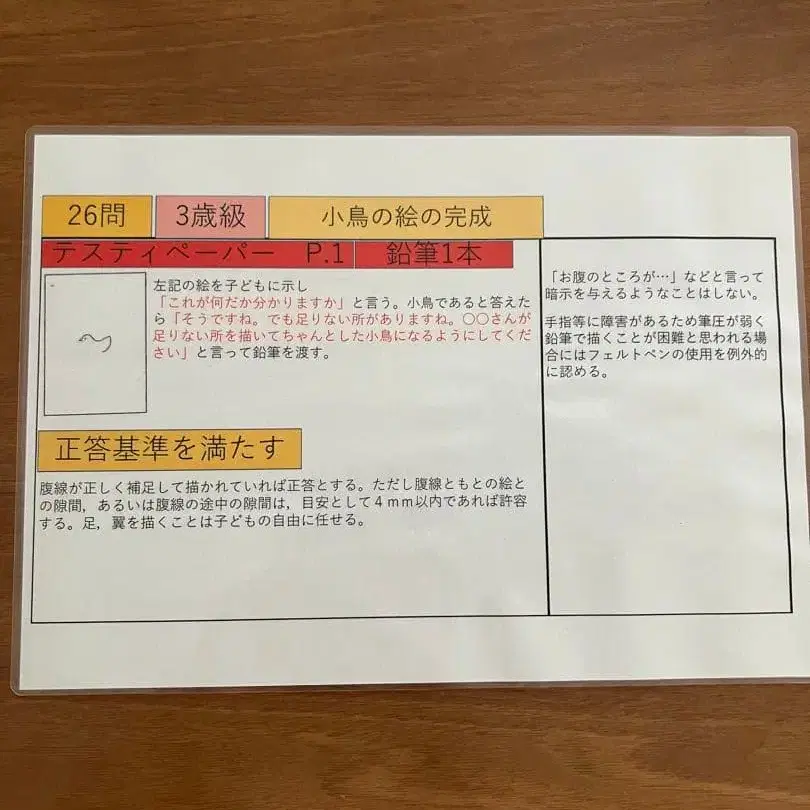 26問 3歳級 小鳥の絵の完成
テスティペーパー P.1 鉛筆1本
左記の絵を子どもに示し
「これが何だか分かりますか」と言う。小鳥であると答えた
ら「そうですね。でも足りない所がありますね。〇〇さんが
足りない所を描いてちゃんとした小鳥になるようにしてくだ
さい」と言って鉛筆を渡す。
正答基準を満たす
腹線が正しく補足して描かれていれば正答とする。ただし腹線ともとの絵と
の隙間，あるいは腹線の途中の隙間は，目安として４ｍｍ以内であれば許容
する。足，翼を描くことは子どもの自由に任せる。
「お腹のところが…」などと言って
暗示を与えるようなことはしない。
手指等に障害があるため筆圧が弱く
鉛筆で描くことが困難と思われる場
合にはフェルトペンの使用を例外的
に認める。